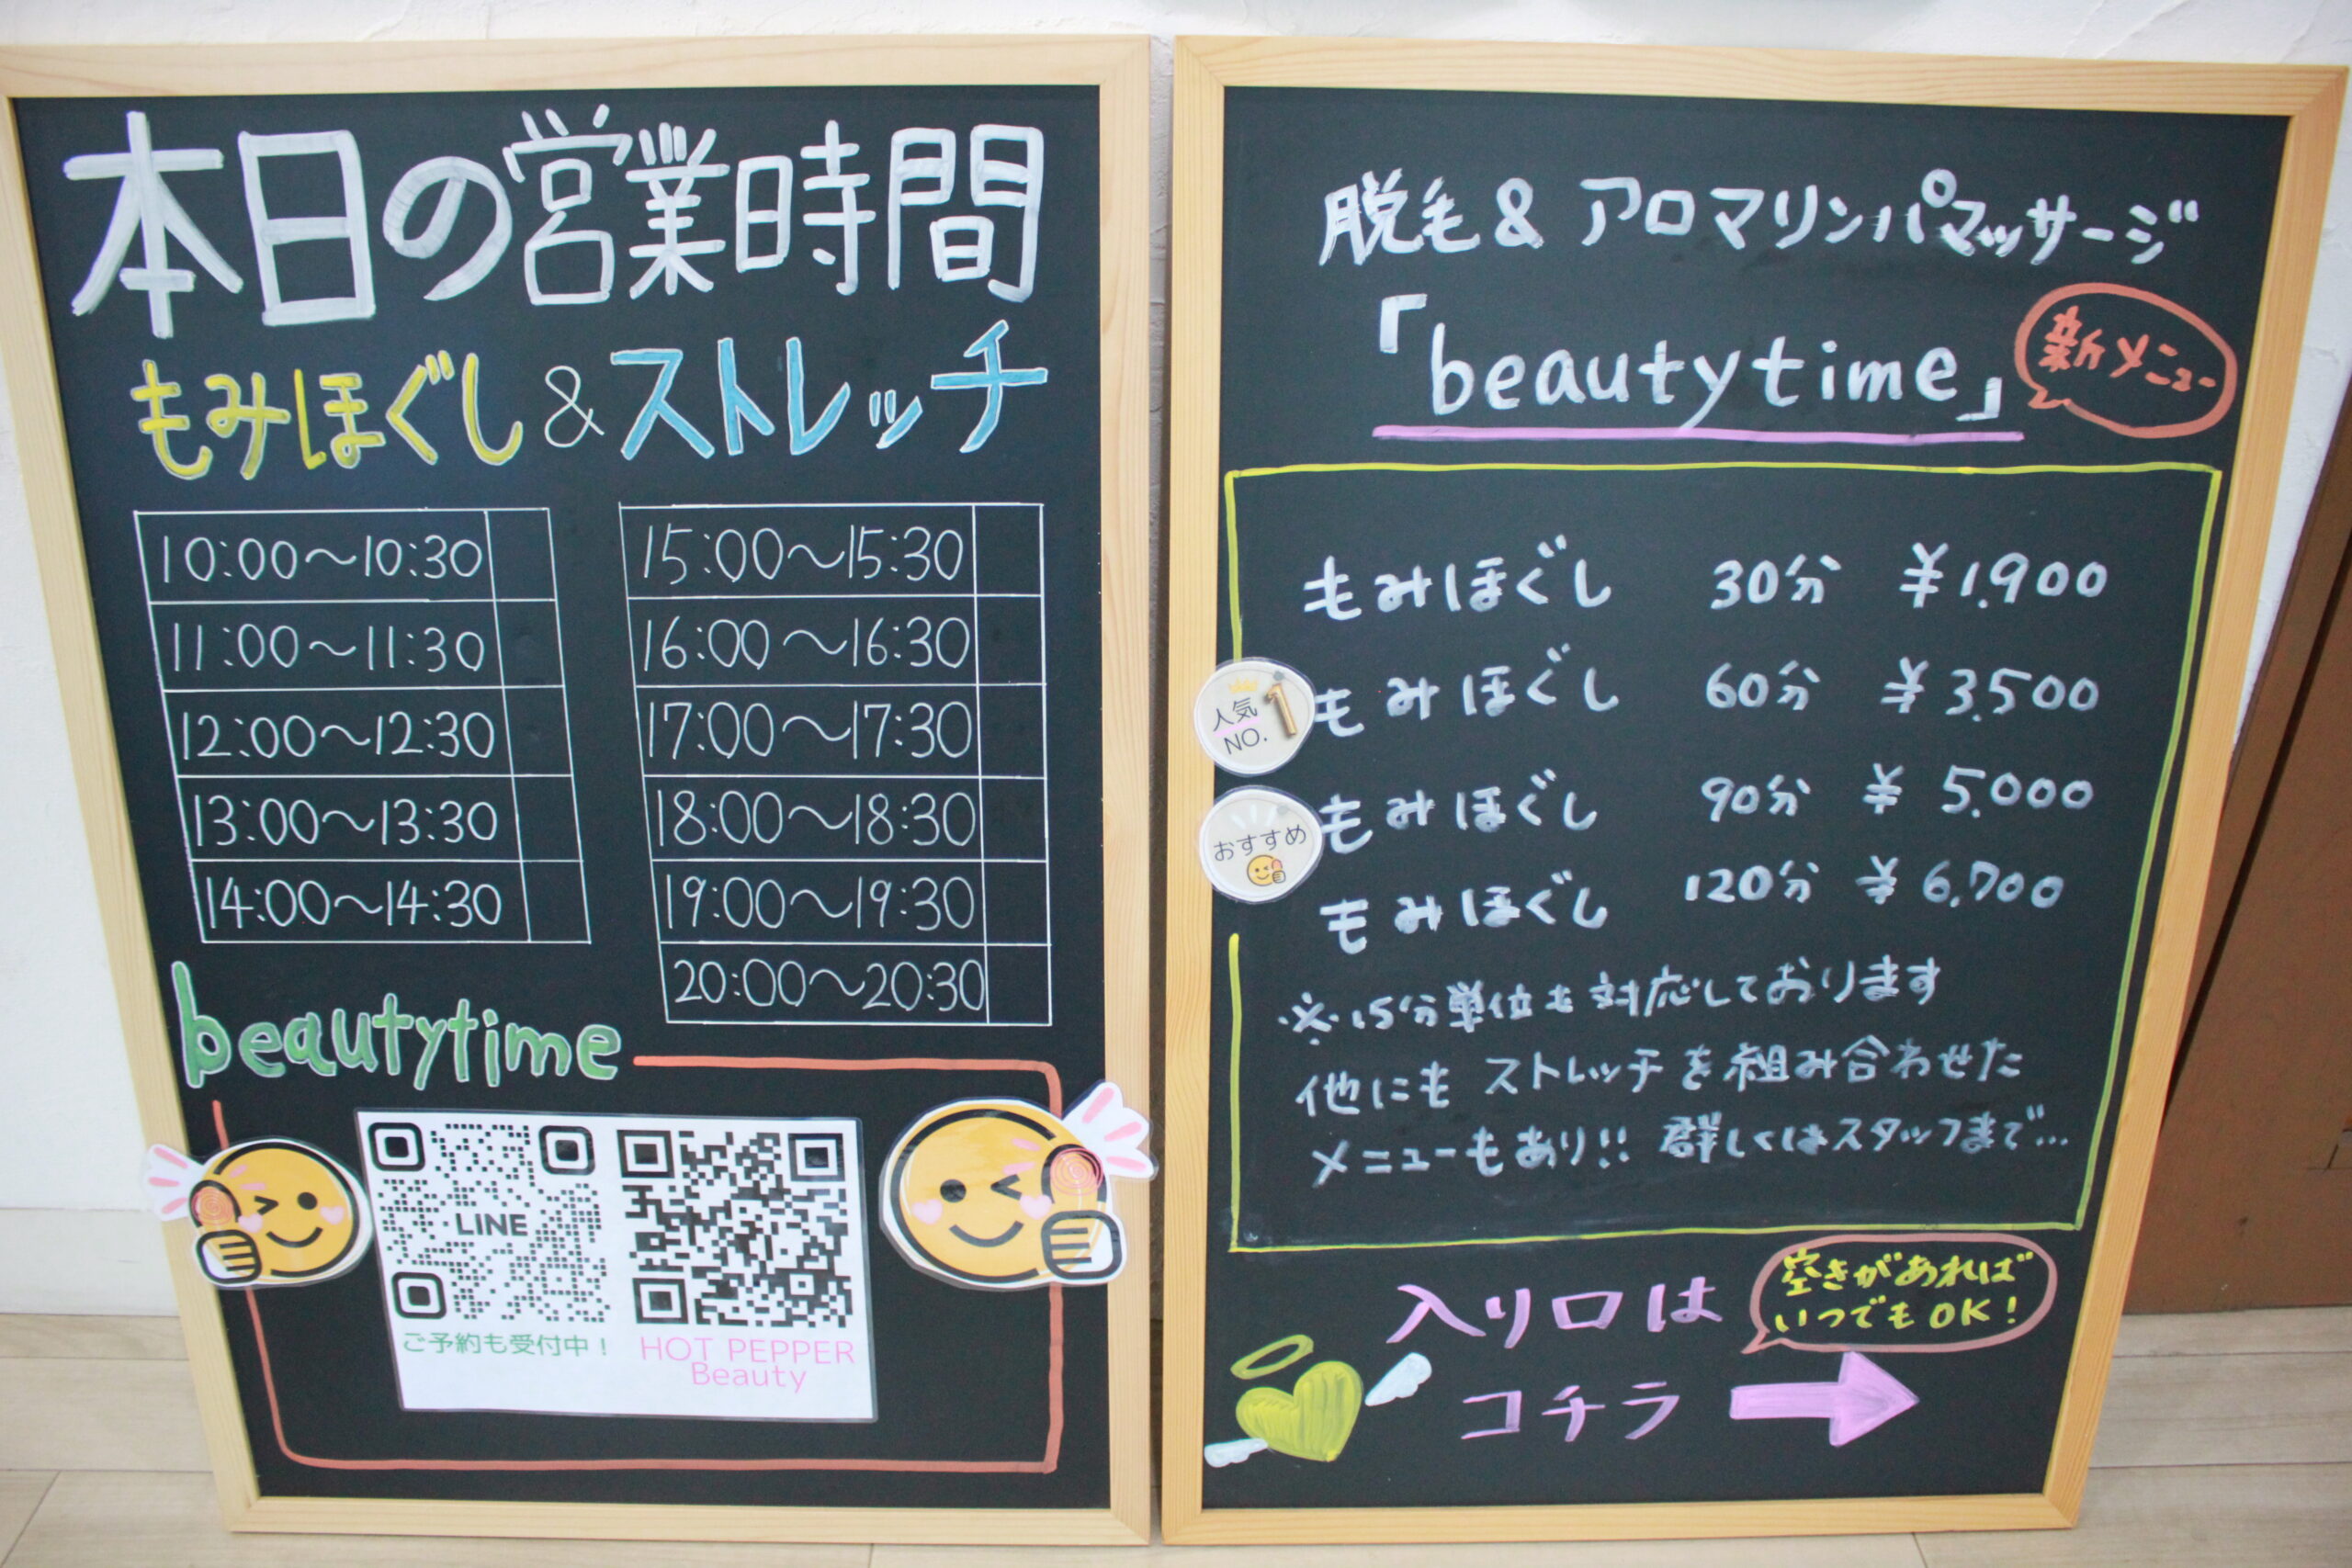 本日の営業時間
もみほぐし&ストレッチ
10:00〜10:30
11:00〜11:30
12:00〜12:30
13:00〜13:30
14:00〜14:30
15:00〜15:30
16:00〜16:30
17:00〜17:30
18:00〜18:30
19:00〜19:30
20:00〜20:30
beautytime
LINE
ご予約も受付中！
HOT PEPPER
Beauty
脱毛&アロマリンパマッサージ
「beautytime」
新メニュー
もみほぐし 30分 ¥1,900
人気NO.1
もみほぐし 60分 ¥3,500
おすすめ
もみほぐし 90分 ¥5,000
もみほぐし 120分 ¥6,700
※15分単位も対応しております
他にもストレッチを組み合わせた
メニューもあり!! 群しくはスタッフまで…
空きがあれば
いつでもOK!
入り口は
コチラ